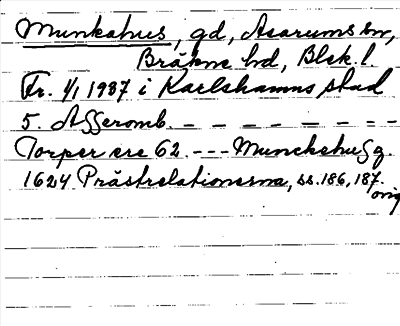 Munkahus, gd, Asarums sn,
Bräkne hd, Blek. l.
Fr. 1/1 1937 i Karlshamns stad
5. Asseromb. – – – – – – –
Torper ere 62. --- Munckehuß g.
1624 Prästrelationerna, ss. 186, 187.
orig